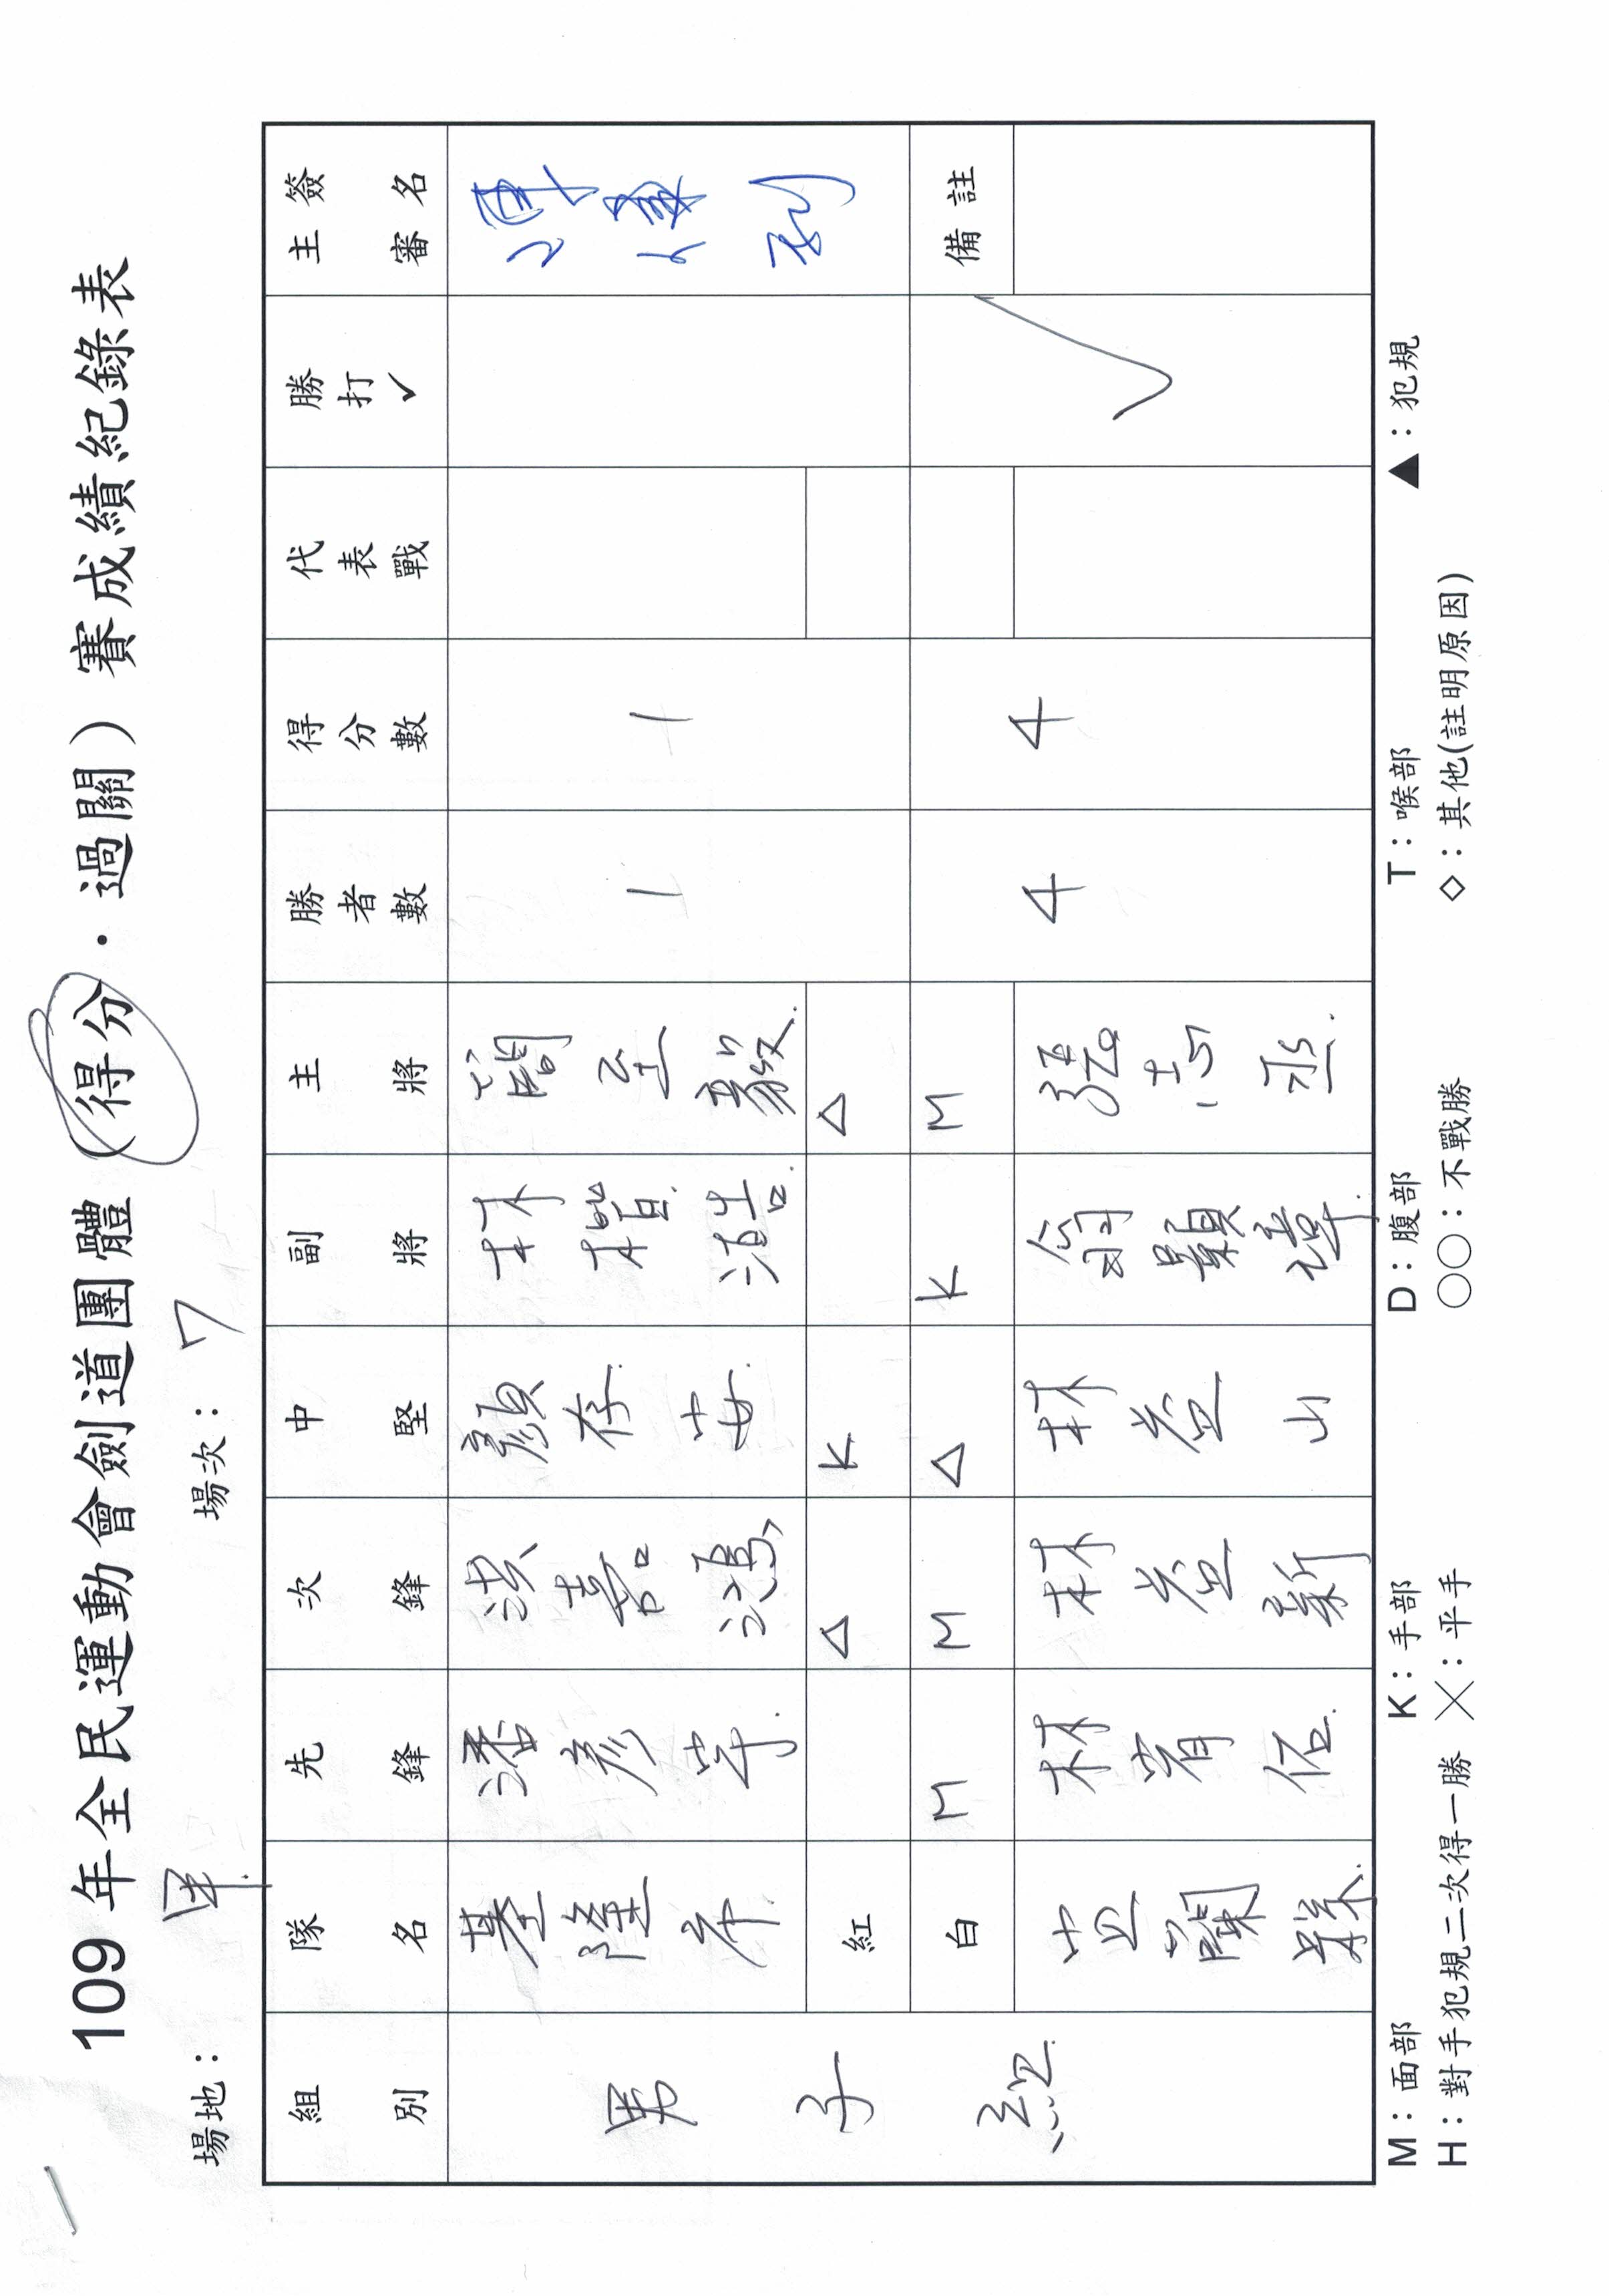 109 年全民運動會劍道團體（得分．過關）賽成績紀錄表
場地： 甲 場次： 7
組別 隊名 先鋒 次鋒 中堅 副將 主將 勝者數 得分數 代表戰 勝打✓ 主審簽名
男子組 基隆市 潘彥宇 洪嘉鴻 顏存安 林楷浩 簡至毅 1 1
紅 △ K △
白 M M △ K M 備註
宜蘭縣 林宥伍 林益新 林益山 翁顥瑋 張志丞 4 4 ✓
M：面部 K：手部 D：腹部 T：喉部 ▲：犯規
H：對手犯規二次得一勝 ╳：平手 ○○：不戰勝 ◇：其他(註明原因)